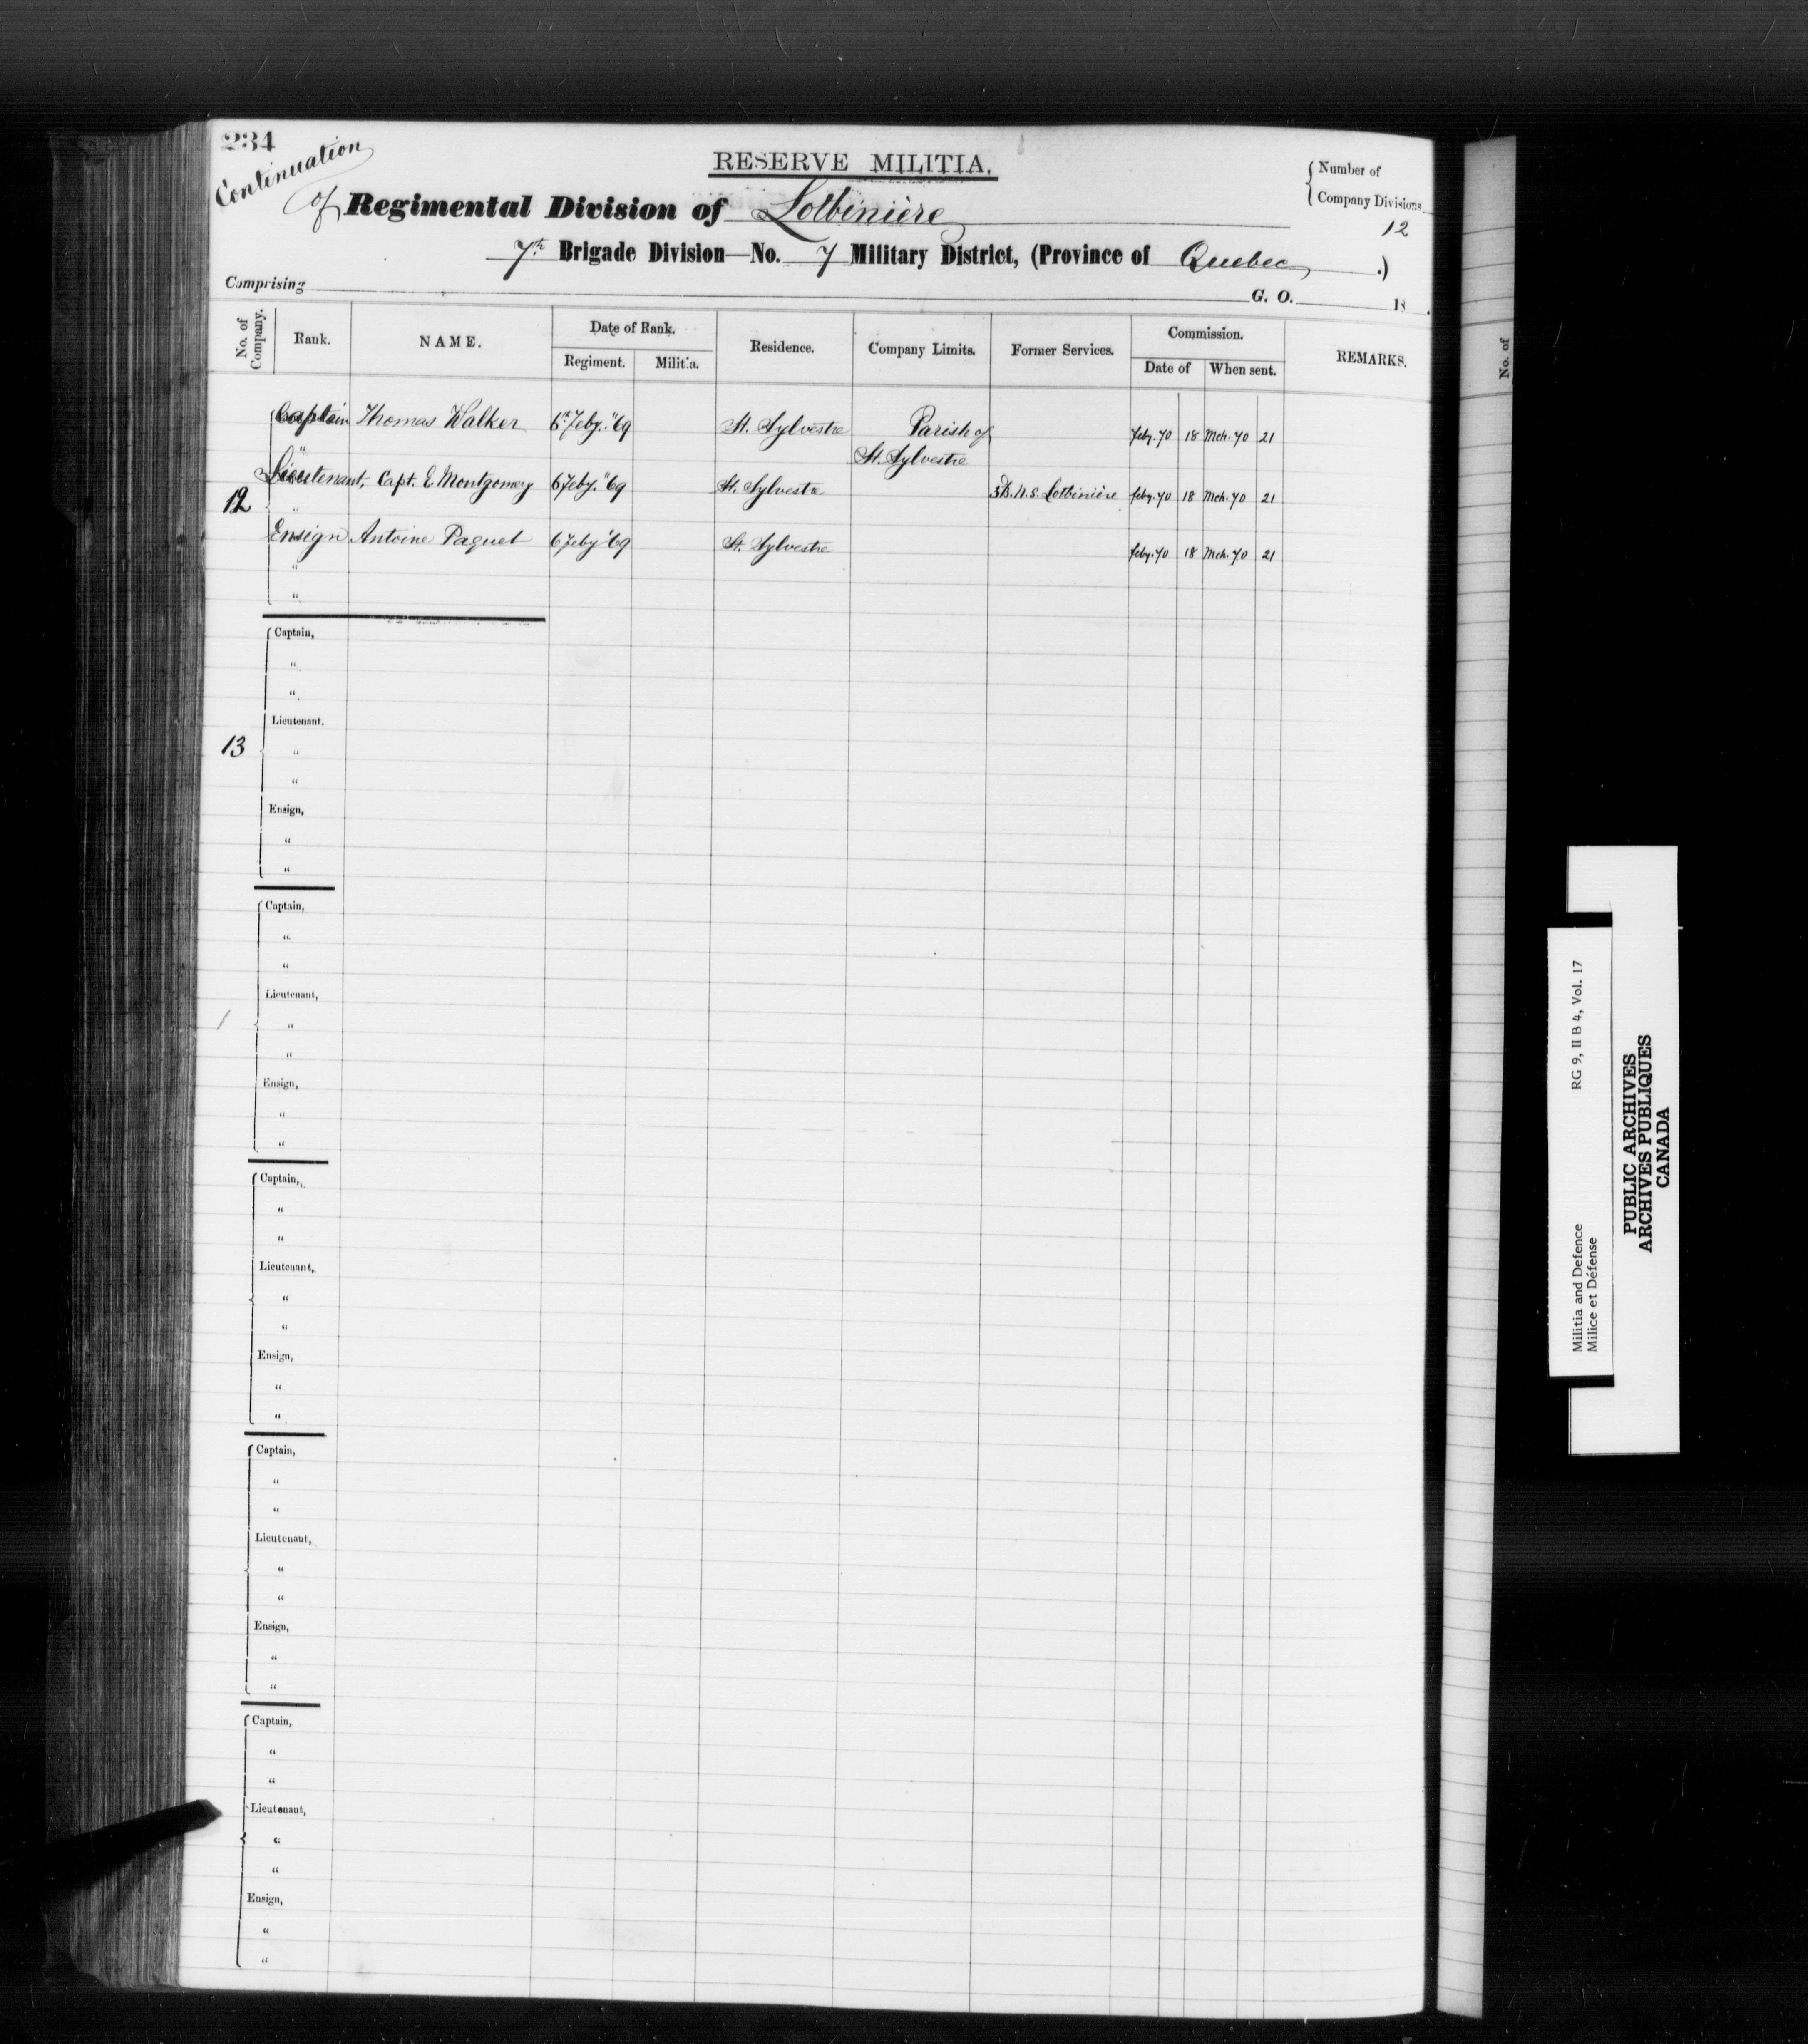 234
Continuation
of
RESERVE MILITIA.
Number of
Company Divisions
12
Regimental Division of Lotbinière
7th Brigade Division—No. 7 Military District, (Province of Quebec .)
Comprising G. O. 18 .
No. of Company. Rank. NAME. Date of Rank. Residence. Company Limits. Former Services. Commission. REMARKS.
Regiment. Militia. Date of When sent.
Captain Thomas Walker 6th Feby. "69 St. Sylvestre Parish of Feby. 70 18 Mch. 70 21
"
St. Sylvestre
12 Lieutenant, Capt. E Montgomery 6 Feby. "69 St. Sylvestre Lotbinière Feby. 70 18 Mch. 70 21
"
Ensign Antoine Paquet 6 Feby "69 St. Sylvestre Feby. 70 18 Mch. 70 21
"
"
Captain,
"
"
Lieutenant.
13 "
"
Ensign,
"
"
Captain,
"
"
Lieutenant,
1 "
"
Ensign,
"
"
Captain,
"
"
Lieutenant,
"
"
Ensign,
"
"
Captain,
"
"
Lieutenant,
"
"
Ensign,
"
"
Captain,
"
"
Lieutenant,
"
"
Ensign,
"
"
No. of
Militia and Defence RG 9, II B 4, Vol. 17
Milice et Défense
PUBLIC ARCHIVES
ARCHIVES PUBLIQUES
CANADA